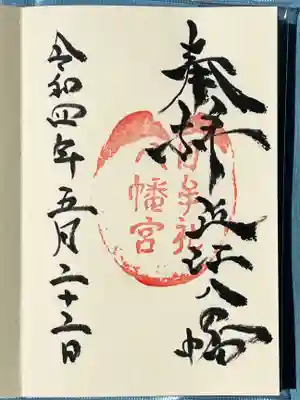 奉拝 近江八幡
日牟礼
八幡宮
令和四年五月二十三日